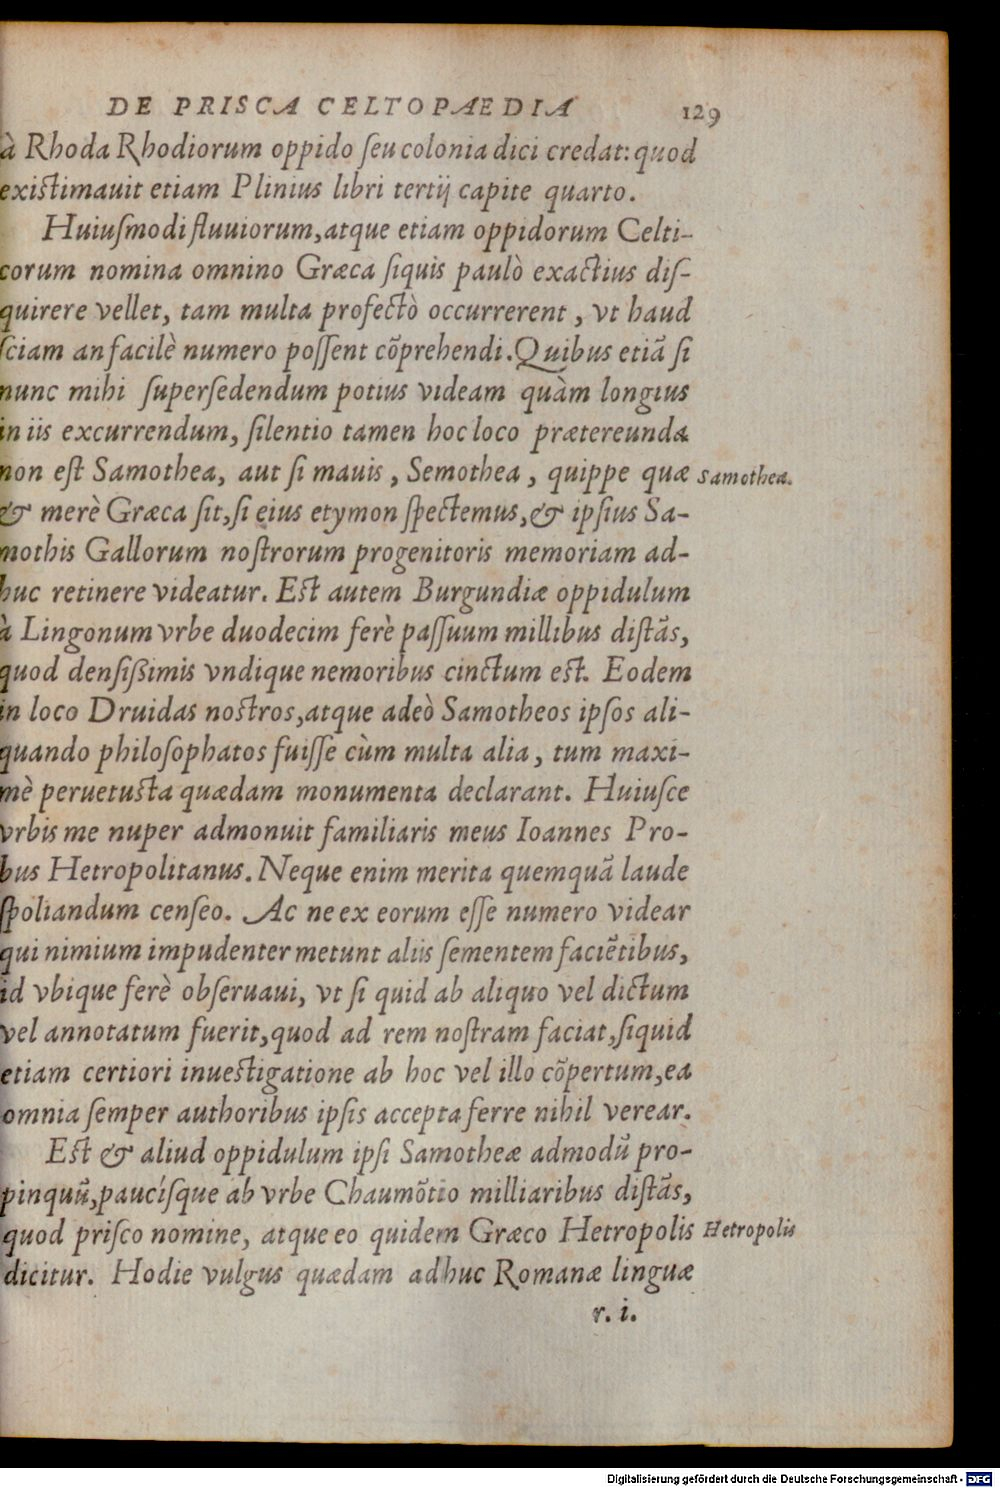 DE PRISCA CELTOPAEDIA 129
à Rhoda Rhodiorum oppido ſeu colonia dici credat: quod
existimauit etiam Plinius libri tertij capite quarto.
Huiuſmodi fluuiorum, atque etiam oppidorum Celti-
corum nomina omnino Græca ſiquis paulò exactius diſ-
quirere vellet, tam multa profectò occurrerent, vt haud
ſciam an facilè numero poſſent cõprehendi. Quibus etiã ſi
nunc mihi ſuperſedendum potius videam quàm longius
in iis excurrendum, ſilentio tamen hoc loco prætereunda
non eſt Samothea, aut ſi mauis, Semothea, quippe quæ Samothea.
& merè Græca ſit, ſi eius etymon ſpectemus, & ipſius Sa-
mothis Gallorum noſtrorum progenitoris memoriam ad-
huc retinere videatur. Est autem Burgundiæ oppidulum
à Lingonum vrbe duodecim ferè paſſuum millibus diſtãs,
quod denſißimis vndique nemoribus cinctum est. Eodem
in loco Druidas nostros, atque adeò Samotheos ipſos ali-
quando philoſophatos fuiſſe cùm multa alia, tum maxi-
mè peruetusta quædam monumenta declarant. Huiuſce
vrbis me nuper admonuit familiaris meus Ioannes Pro-
bus Hetropolitanus. Neque enim merita quemquã laude
ſpoliandum cenſeo. Ac ne ex eorum eſſe numero videar
qui nimium impudenter metunt aliis ſementem faciẽtibus,
id vbique ferè obſeruaui, vt ſi quid ab aliquo vel dictum
vel annotatum fuerit, quod ad rem noſtram faciat, ſiquid
etiam certiori inuestigatione ab hoc vel illo cõpertum, ea
omnia ſemper authoribus ipſis accepta ferre nihil verear.
Est & aliud oppidulum ipſi Samotheæ admodũ pro-
pinquũ, paucíſque ab vrbe Chaumõtio milliaribus diſtãs,
quod priſco nomine, atque eo quidem Græco Hetropolis Hetropolis
dicitur. Hodie vulgus quædam adhuc Romanæ linguæ
r. i.
Digitalisierung gefördert durch die Deutsche Forschungsgemeinschaft - DFG